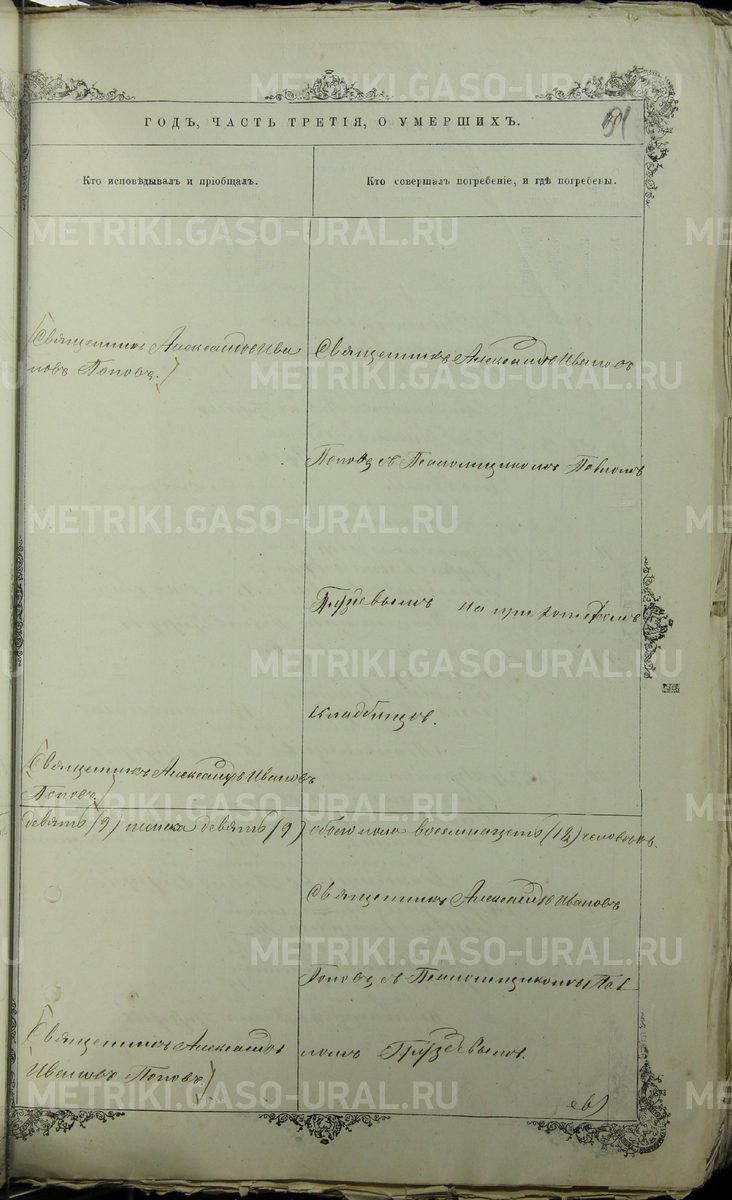 METRIKI.GASO-URAL.RU METRIKI.GASO-URAL.RU
ГОДЪ, ЧАСТЬ ТРЕТІЯ, О УМЕРШИХЪ.
91
Кто исповѣдывалъ и пріобщалъ.
Кто совершалъ погребеніе, и гдѣ погребены.
METRIKI.GASO-URAL.RU
Священникъ Александръ Ива
новъ Поповъ.
Священникъ Александръ Ивановъ
METRIKI.GASO-URAL.RU
Поповъ съ Псаломщикомъ Павломъ
METRIKI.GASO-URAL.RU
Груздевымъ на приходскомъ
METRIKI.GASO-URAL.RU
кладбищѣ.
Священникъ Александръ Ивановъ
Поповъ
METRIKI.GASO-URAL.RU
девять (9) женска девять (9) обоего пола восемнацеть (18) человѣкъ.
Священникъ Александръ Ивановъ
METRIKI.GASO-URAL.RU
Поповъ съ Псаломщикомъ Пав
Священникъ Александръ
Ивановъ Поповъ
ломъ Груздевымъ.
METRIKI.GASO-URAL.RU